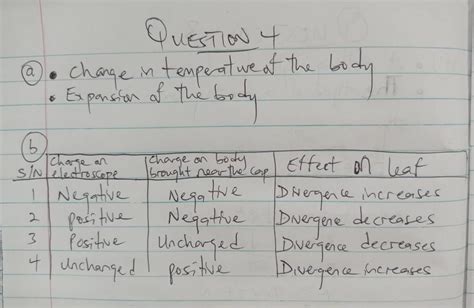 QUESTION 4
(a) • Change in temperature of the body
• Expansion of the body
(b)
S/N | Charge on electroscope | Charge on body brought near the cap | Effect on leaf
1 | Negative | Negative | Divergence increases
2 | positive | Negative | Divergene decreases
3 | Positive | Uncharged | Divergence decreases
4 | Uncharged | positive | Divergence increases